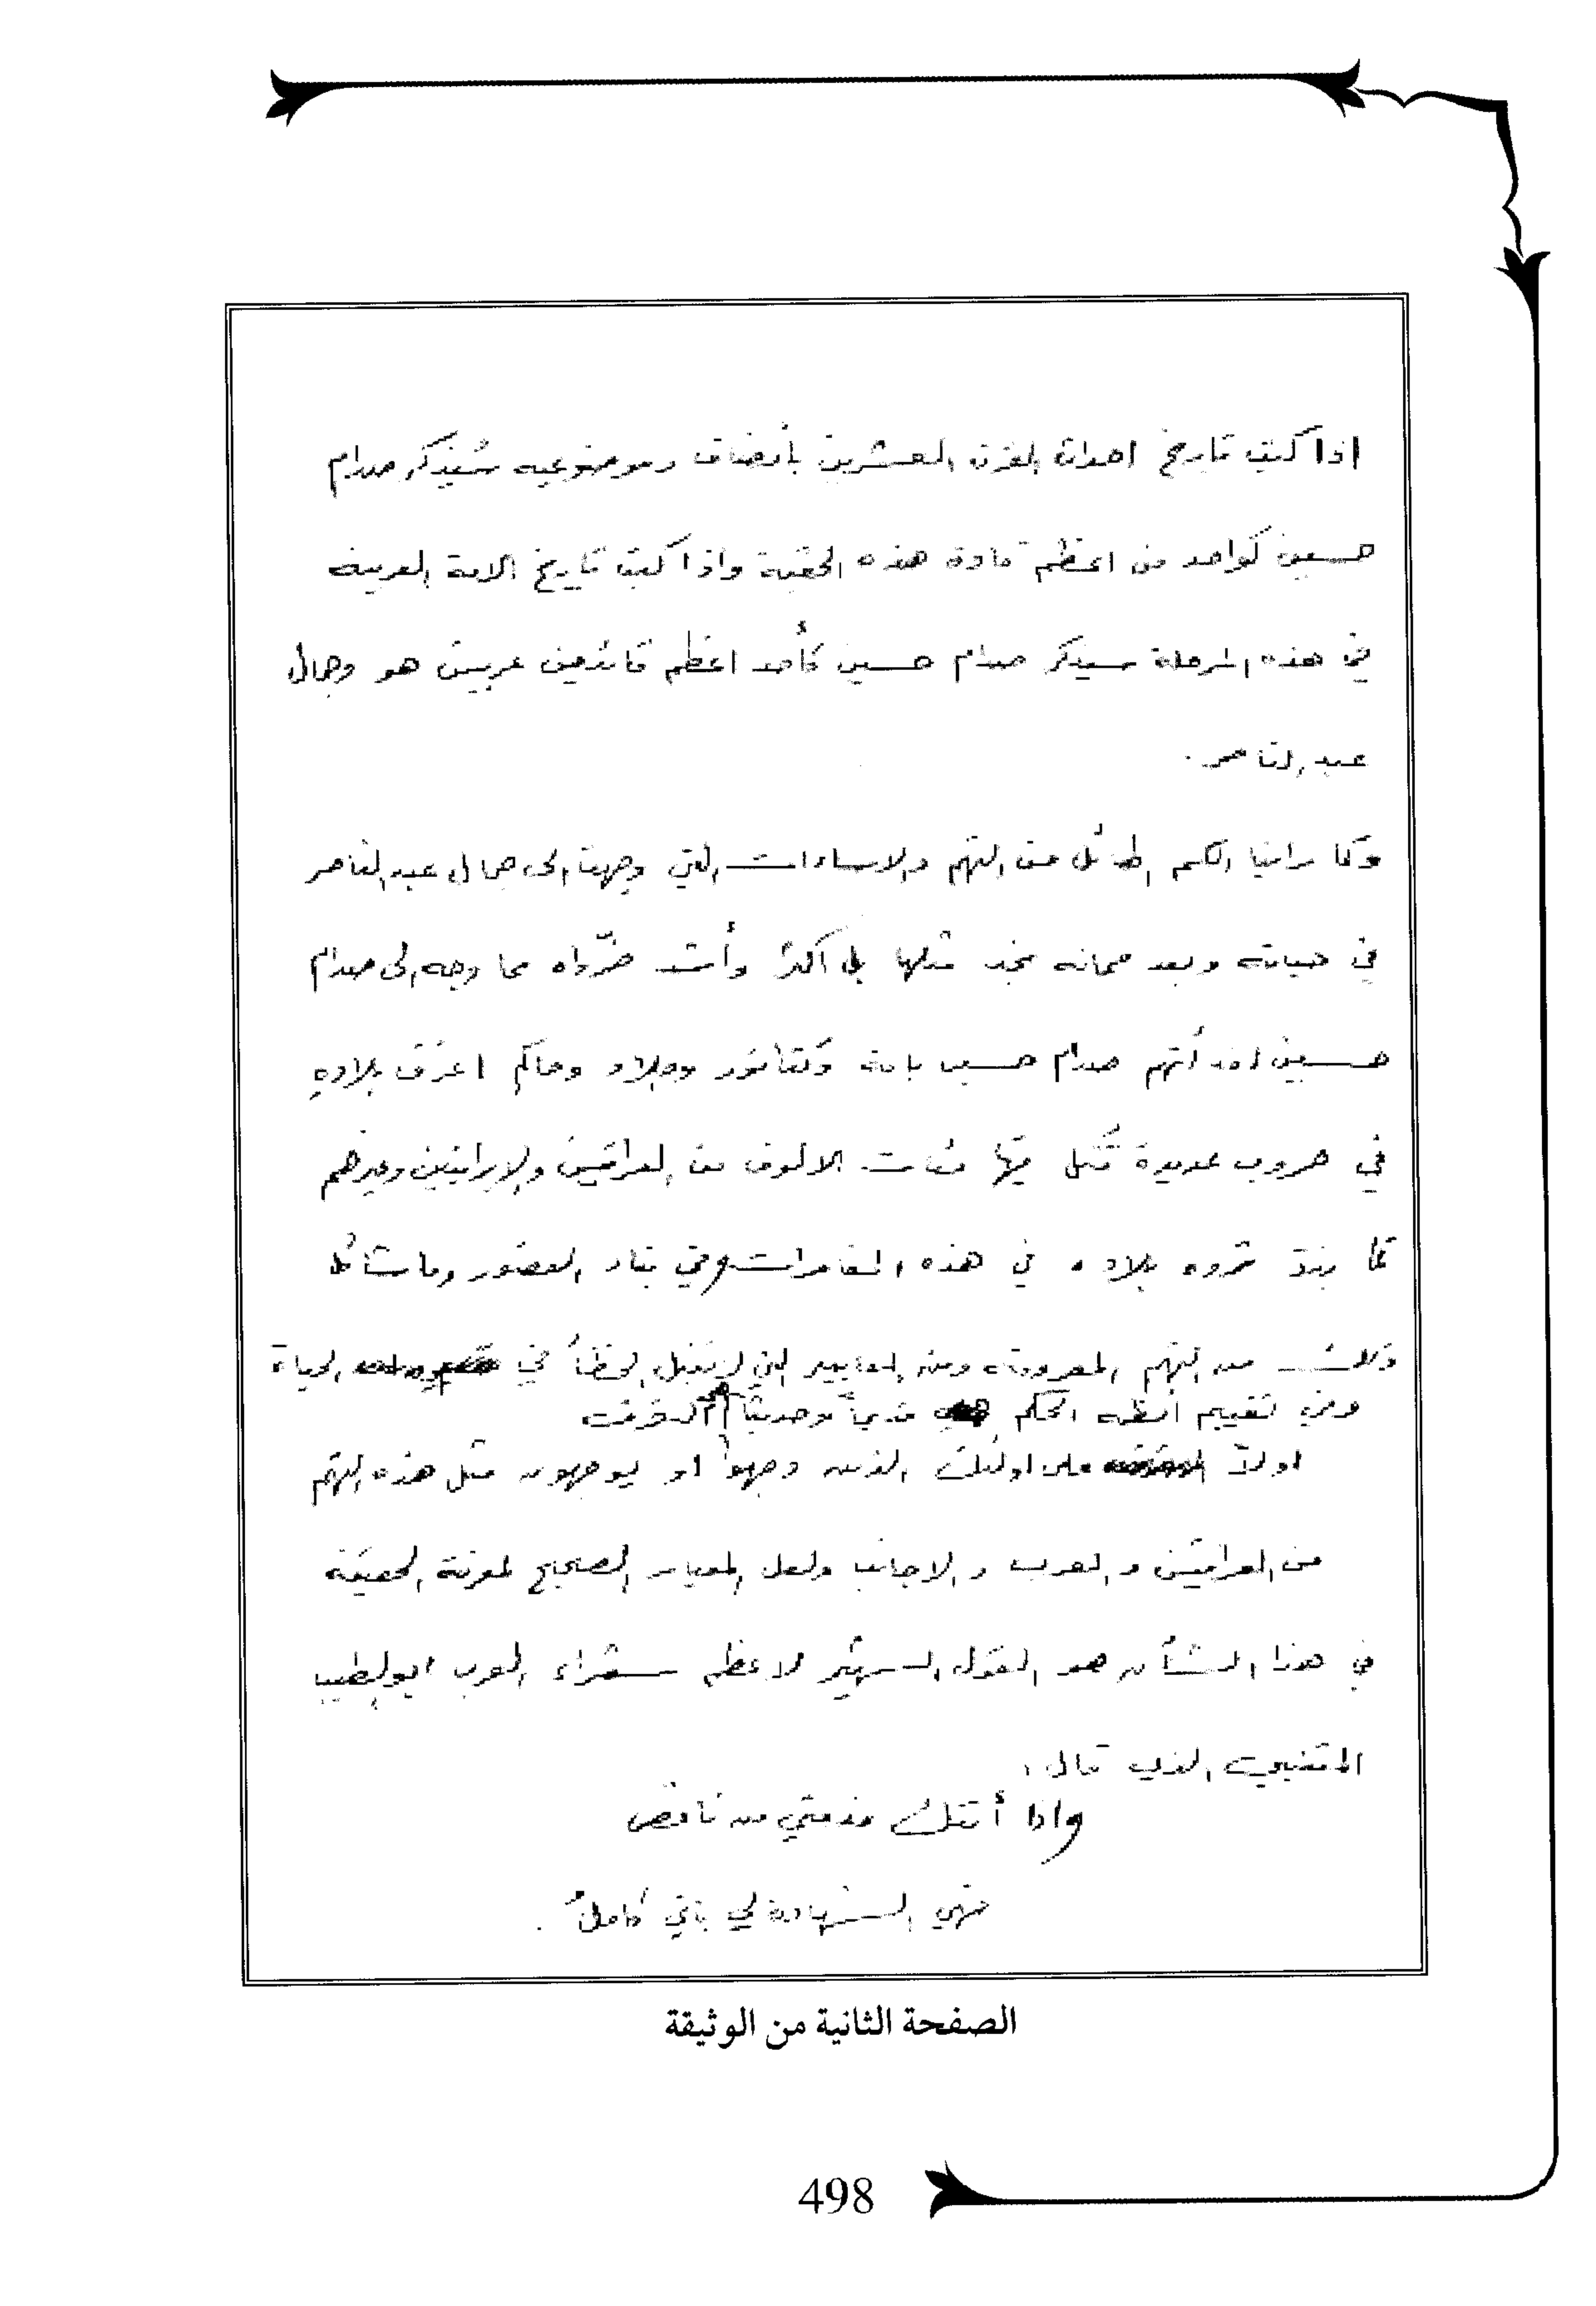 اذا كتب تاريخ احداث القرن العشرين بأنصاف وموضوعيه سُيذكر صدام
حسين كواحد من اعظم قادة هذه الحقبة واذا كتب تاريخ الامة العربيه
في هذه المرحلة سيذكر صدام حسين كأحد اعظم قائدين عربيين هو وجمال
عبد الناصر .
وكما راينا الكم الهائل من التهم والاساءات التي وجهت الى جمال عبد الناصر
في حياته وبعد مماته نجد مثلها بل اكثر وأشد ضرّواه مما وجه الى صدام
حسين لقد أتهم صدام حسين بانه دكتاتور وجلاد وحاكم اغرق بلاده
في حروب عديدة قُتل فيها مئات الالوف من العراقيين والايرانيين وغيرهم
كما بدد ثروه بلاده في هذه المغامرات وفي بناء القصور وما شاكل
ذلك من التهم المعروفه ومن المعايير التي لا تقبل الخطأ في الحياة
وفي تقييم انظمه الحكم قديماً وحديثاً
اولاً على اولئك الذين وجهوا او يوجهون مثل هذه التهم
من العراقيين والعرب والاجانب ولعل المعيار الصحيح لمعرفة الحقيقه
في هذا الشأن هو القول الشهير لاعظم شعراء العرب ابو الطيب
المتنبي الذي قال :
واذا أتتك مذمتي من ناقص
فهي الشهادة لي باني كاملُ .
الصفحة الثانية من الوثيقة
498